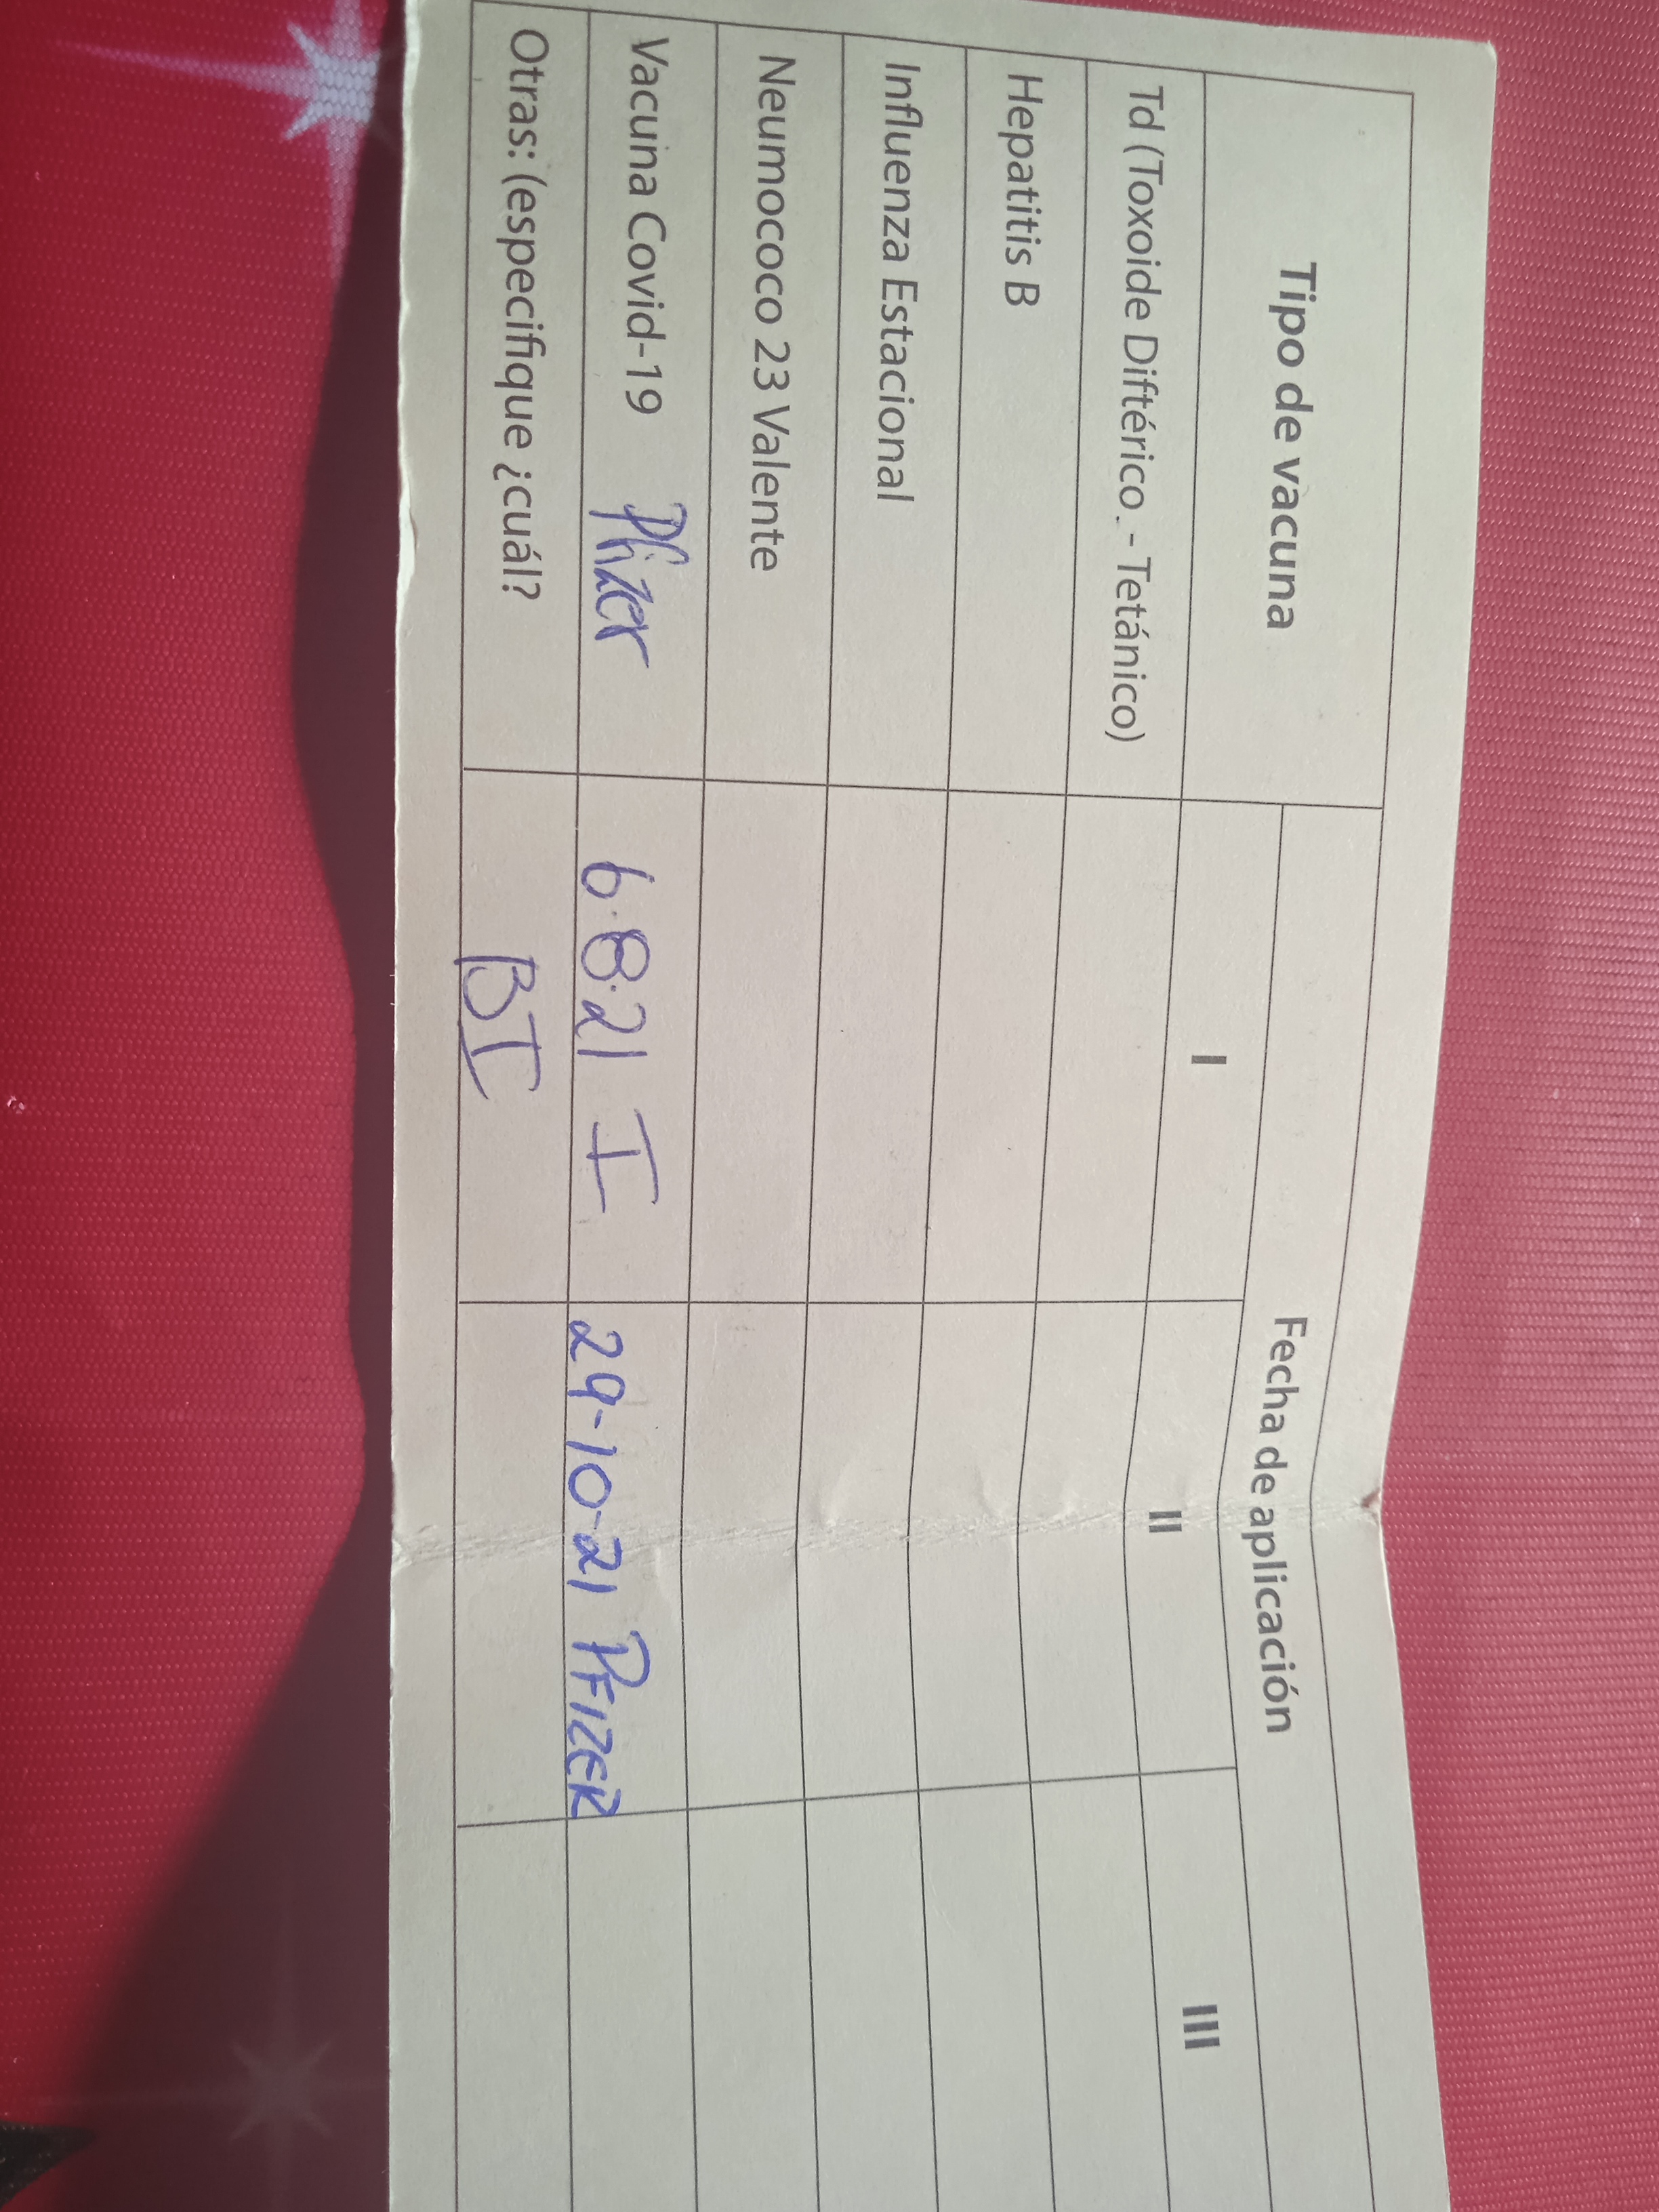 Tipo de vacuna
Fecha de aplicación
I II III
Td (Toxoide Diftérico. - Tetánico)
Hepatitis B
Influenza Estacional
Neumococo 23 Valente
Vacuna Covid-19 Pfizer 6.8.21 I 29-10-21 PFIZER
Otras: (especifique ¿cuál? BI